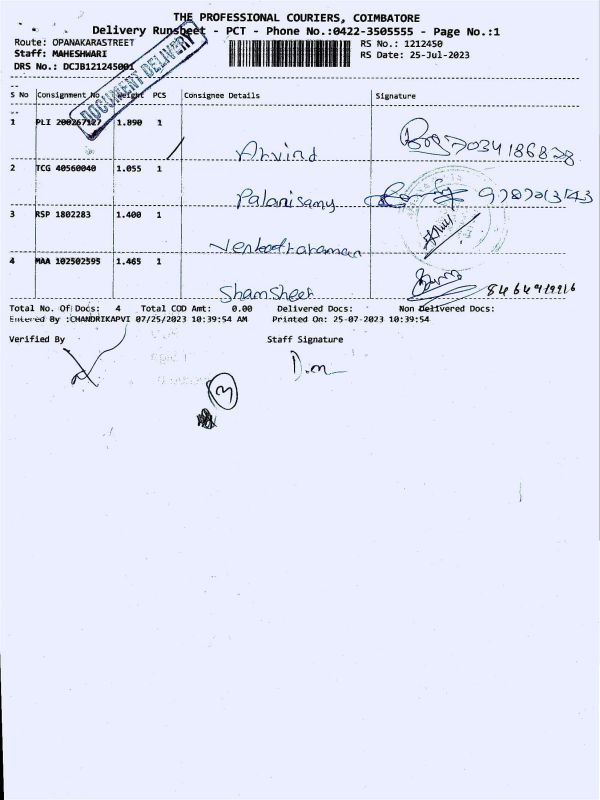 THE PROFESSIONAL COURIERS, COIMBATORE
Delivery Runsheet - PCT - Phone No.:0422-3505555 - Page No.:1
Route: OPANAKARASTREET
RS No.: 1212450
Staff: MAHESHWARI
RS Date: 25-Jul-2023
DRS No.: DCJB121245001
DOCUMENT DELIVERY
S No Consignment No Weight PCS Consignee Details Signature
1 PLI 200267127 1.890 1
Arvind 7034186828
2 TCG 40560040 1.055 1
Palanisamy
3 RSP 1802283 1.400 1
Venkatharaman
4 MAA 102502595 1.465 1
Shamsheer
Total No. Of Docs: 4 Total COD Amt: 0.00 Delivered Docs: Non Delivered Docs:
Entered By :CHANDRIKAPVI 07/25/2023 10:39:54 AM Printed On: 25-07-2023 10:39:54
Verified By Staff Signature
D.m
3